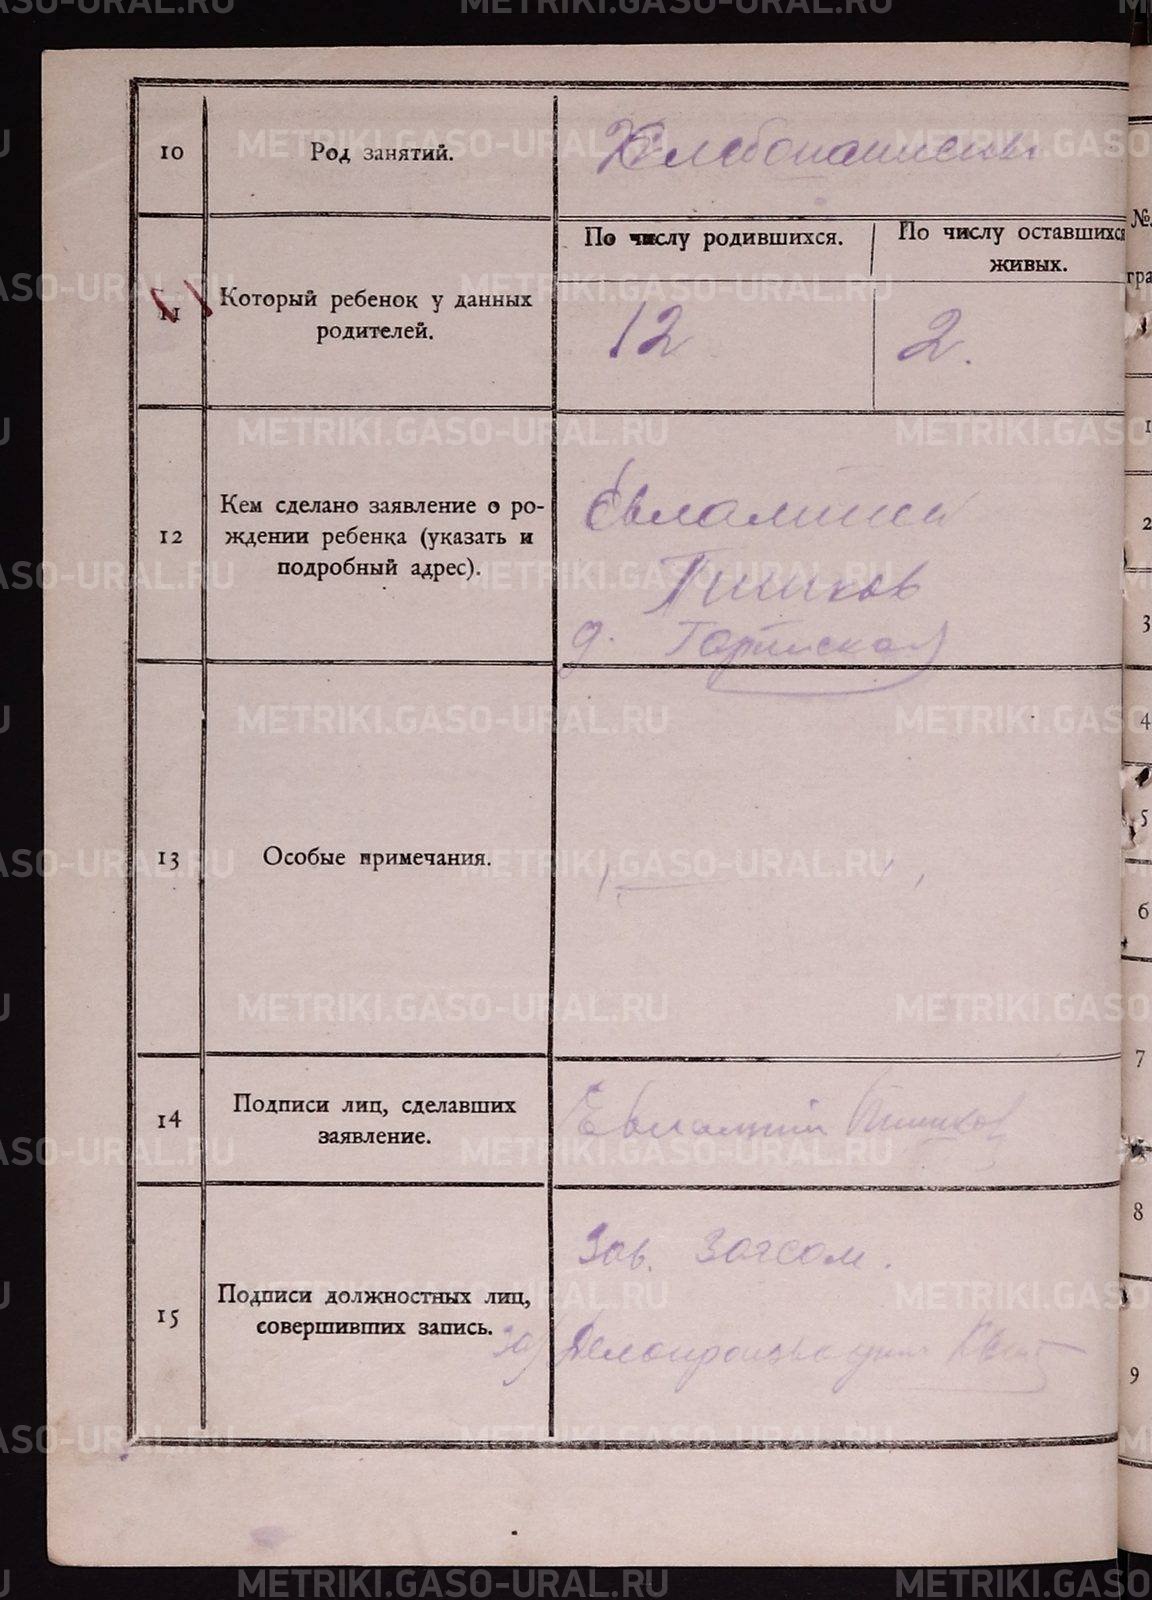 METRIKI.GASO-URAL.RU
10
Род занятий.
Хлебопашцы
11
Который ребенок у данных
родителей.
По числу родившихся.
По числу оставшихся
живых.
12
2.
12
Кем сделано заявление о ро-
ждении ребенка (указать и
подробный адрес).
Евлампий
Пшиков
д.
13
Особые примечания.
14
Подписи лиц, сделавших
заявление.
Евлампий Пшиков
15
Подписи должностных лиц,
совершивших запись.
Зав. Загсом.
за/ Делопроизводит
№.
гра
1
2
3
4
5
6
7
8
9